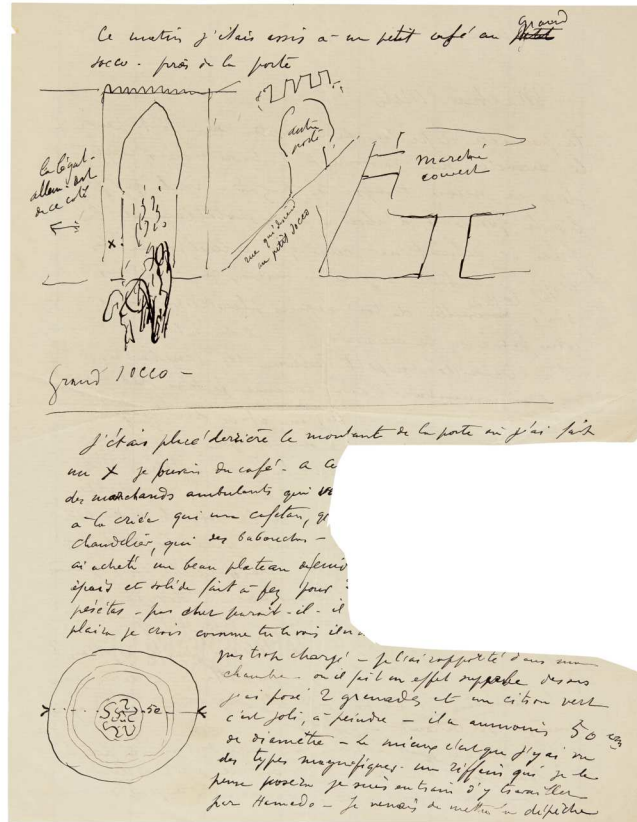 Ce matin j'étais assis à un petit café au grand
socco - près de la porte
la légat-
allem. est
de ce côté
autre
porte
marché
couvert
rue qui descend
au petit socco
x
Grand Socco -
J'étais placé derrière le montant de la porte où j'ai fait
un X je buvais du café - a
des marchands ambulants qui
à la criée qui un cafetan,
chandelier, qui des babouches -
ai acheté un beau plateau
épais et solide fait à fez pour
pésétas - pas cher paraît-il - il
plaira je crois comme tu le vois il n'
pas trop chargé - je l'ai rapporté dans ma
chambre - où il fait un effet superbe dessus
j'ai posé 2 grenades et un citron vert
c'est joli, à peindre - il a au moins 50 cm
de diamètre - le mieux c'est que j'y ai vu
des types magnifiques - un riffain qui je le
pense posera je suis en train d'y travailler
par Hamedo - Je venais de mettre la dépêche
50